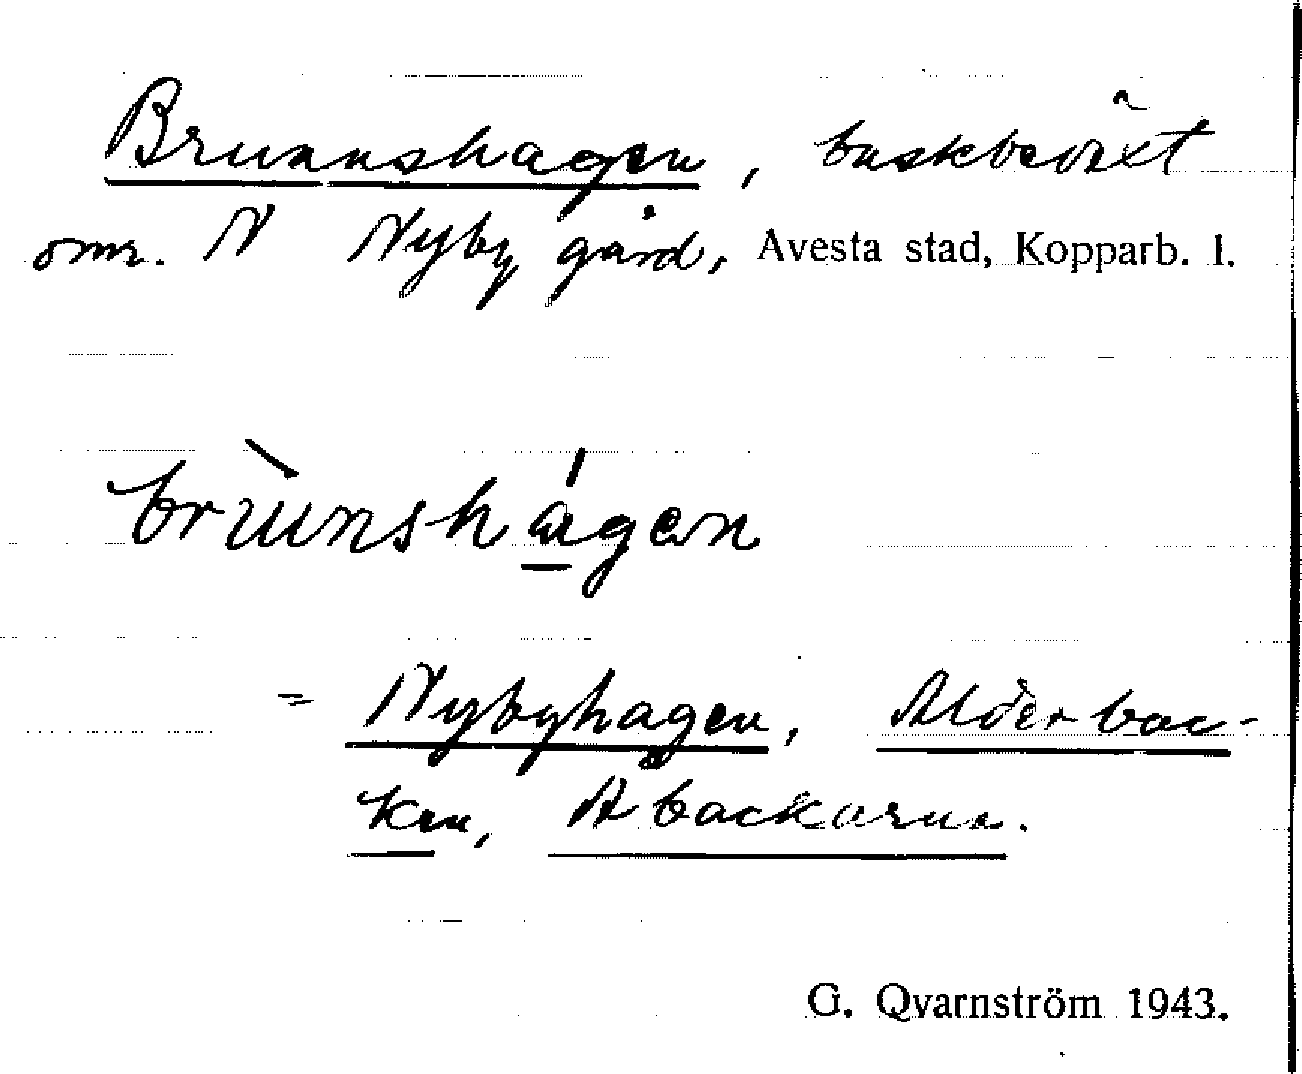 Brunnshagen, buskbeväxt
omr. N Nyby gård, Avesta stad, Kopparb. l.
brùnshágen
= Nybyhagen, Alderbac-
ken, Åbackarna.
G. Qvarnström 1943.